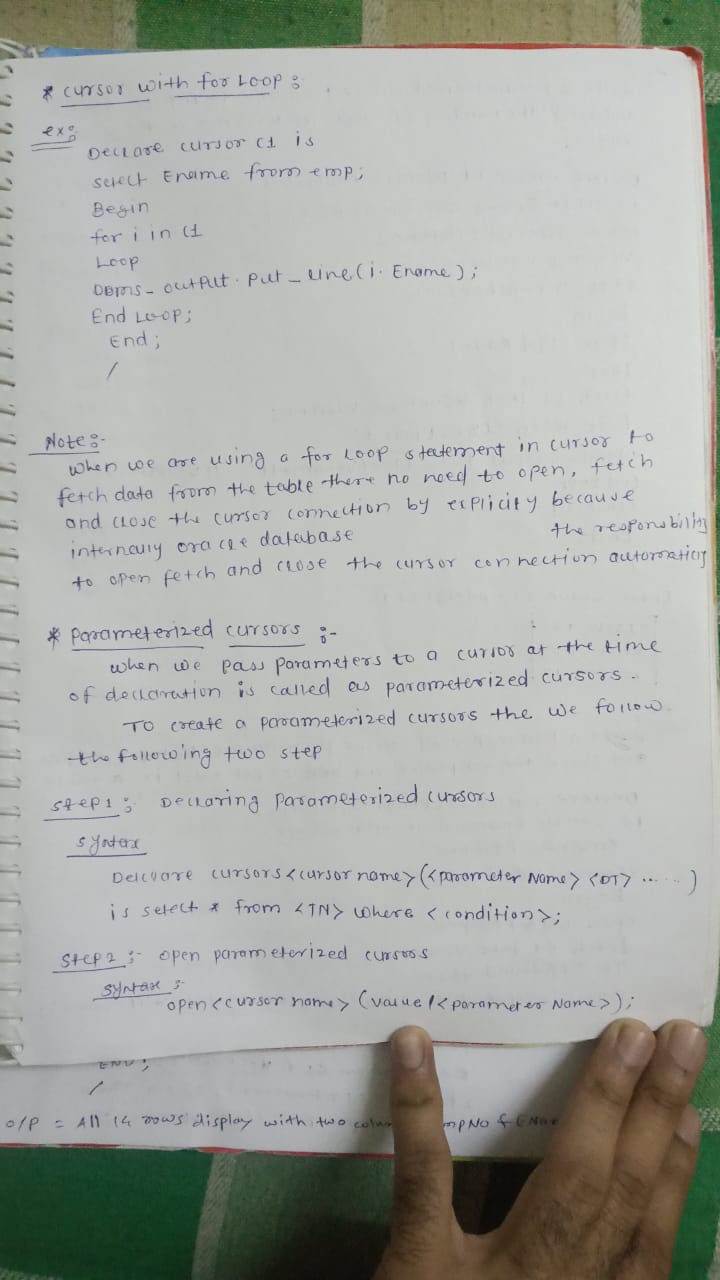 * cursor with for Loop :
ex:
Declare cursor C1 is
select Ename from emp;
Begin
for i in C1
Loop
DBMS_output.put_line(i.Ename);
End Loop;
End;
/
Note:-
when we are using a for Loop statement in cursor to
fetch data from the table there no need to open, fetch
and close the cursor connection by explicity because
internally oracle database the responsibility
to open fetch and close the cursor connection automaticly
* Parameterized cursors :-
when we pass parameters to a cursor at the time
of declaration is called as parameterized cursors.
To create a parameterized cursors the we follow
the following two step
step1: Declaring Parameterized cursors
syntax
Delcare cursors <cursor name> (<parameter Name> <DT> ......)
is select * from <TN> where <condition>;
step2:- open parameterized cursors
syntax:
open <cursor name> (value/<parameter Name>);
END;
/
o/p = All 14 rows display with two